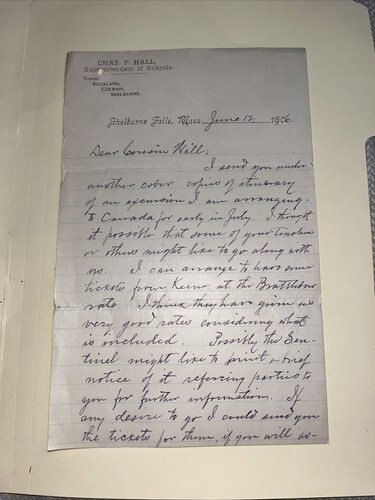 CHAS. F. HALL,
Superintendent of Schools.
TOWNS:
BUCKLAND,
COLRAIN,
SHELBURNE.
Shelburne Falls, Mass., June 12, 1906.
Dear Cousin Will:
I send you under
another cover copies of itinerary
of an excursion I am arranging
to Canada for early in July. I thought
it possible that some of your teachers
or others might like to go along with
us. I can arrange to have some
tickets from Keene at the Brattleboro
rate. I think they have given us
very good rates considering what
is included. Possibly the Sen-
tinel might like to print a brief
notice of it referring parties to
you for further information. If
any desire to go I could send you
the tickets for them, if you will as-